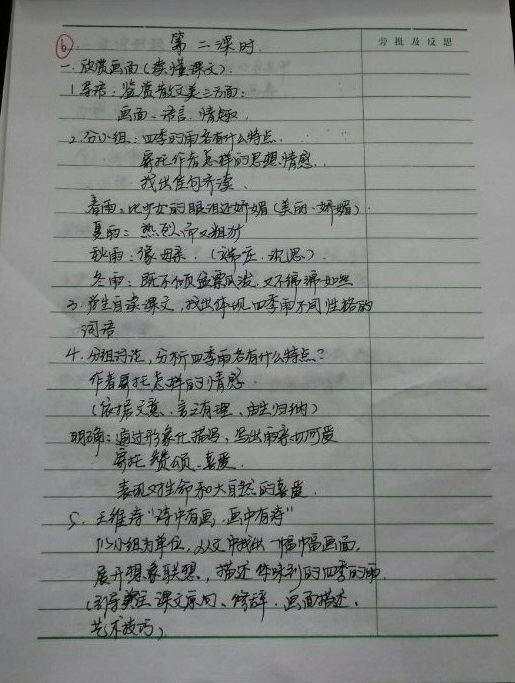 6
第二课时.
旁批及反思
一. 欣赏画面(读懂课文).
1. 导语: 鉴赏散文美三方面:
画面、语言、情趣.
2. 分小组: 四季的雨各有什么特点.
寄托作者怎样的思想情感.
找出佳句齐读.
春雨: 比少女的眼泪还娇媚(美丽·娇媚).
夏雨: 热烈而又粗犷
秋雨: 像母亲. (端庄. 沉思)
冬雨: 既不倾盆瓢泼. 又不绵绵如丝
3. 学生自读课文, 找出体现四季雨不同性格的
词语
4. 分组讨论, 分析四季雨各有什么特点?
作者寄托怎样的情感.
(依据文意、言之有理、由生归纳)
明确: 通过形象化描写, 写出雨亲切可爱
寄托赞颂、喜爱.
表现对生命和大自然的喜爱.
5. 王维诗“诗中有画. 画中有诗”
以小组为单位, 从文中找出一幅幅画面,
展开想象联想, 描述体味到的四季的雨.
(引导 课文原句、修辞. 画面描述、
艺术技巧)